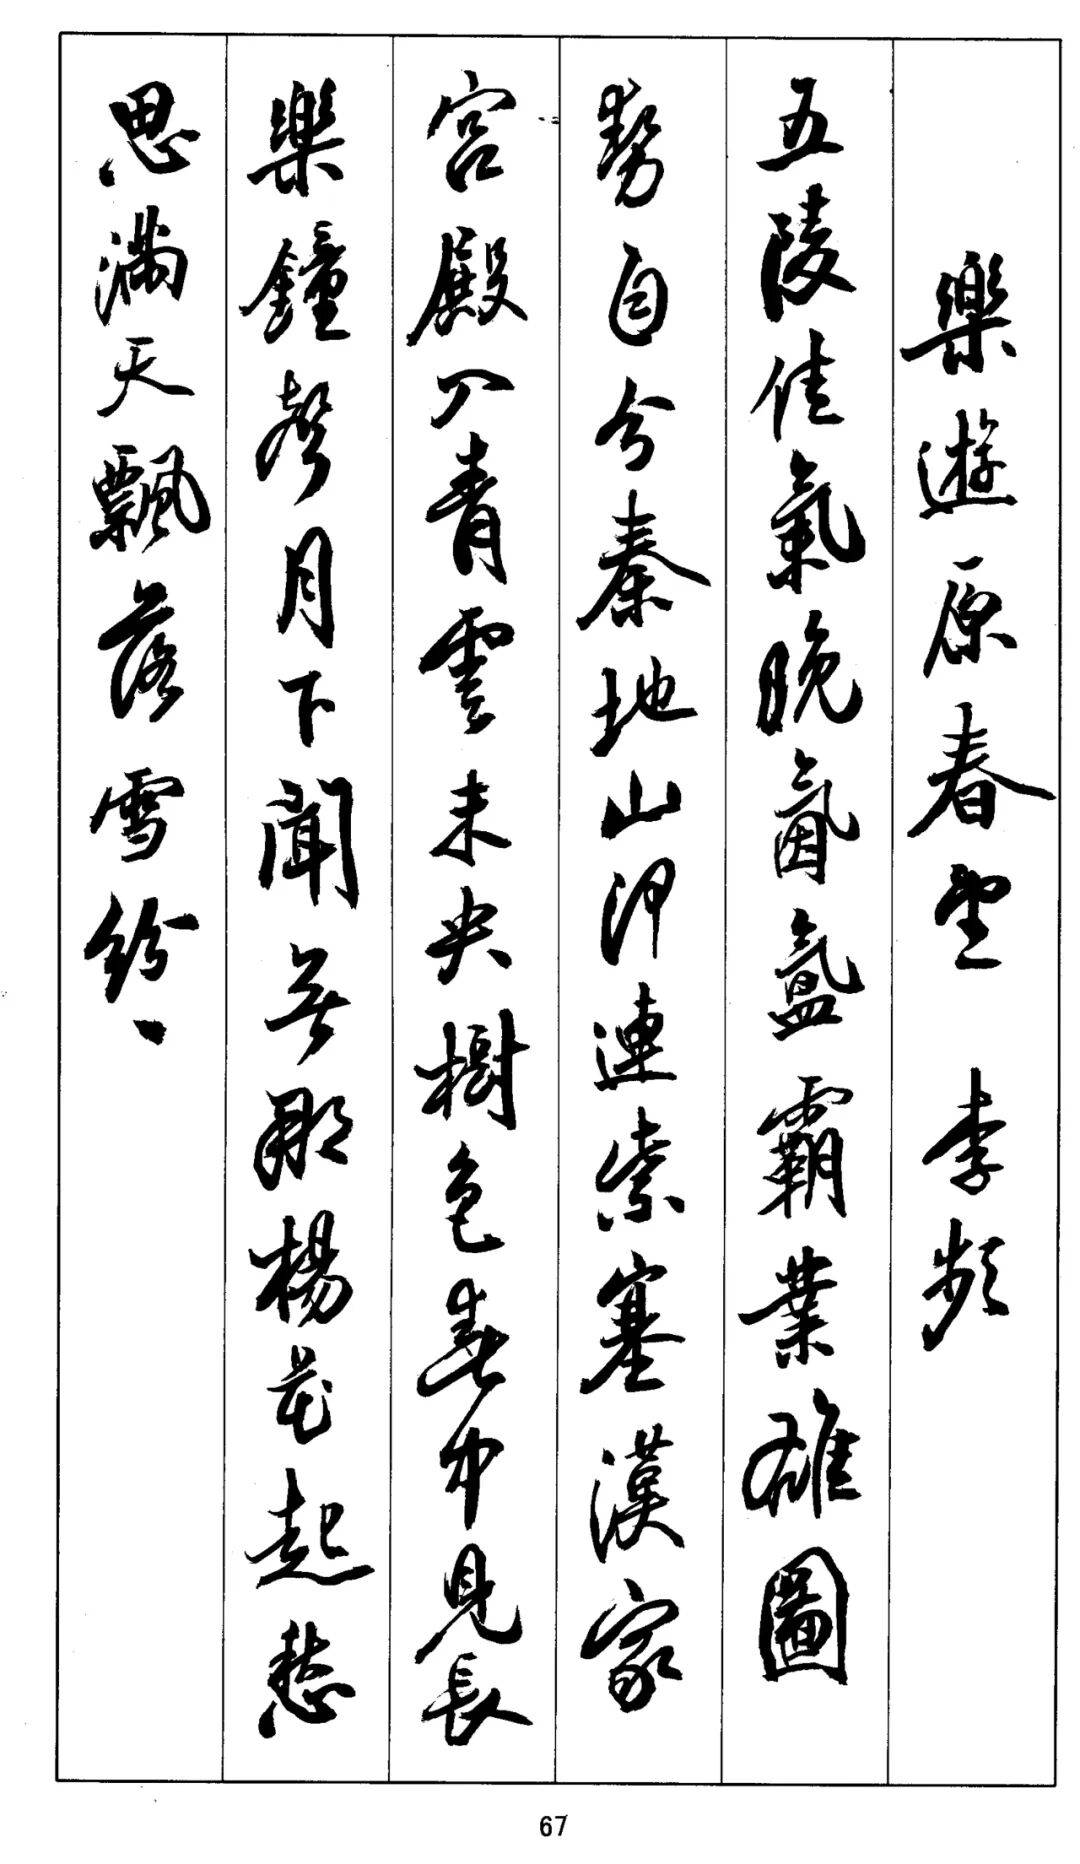 樂遊原春望 李頻
五陵佳氣晚氤氳霸業雄圖
勢自分秦地山河連紫塞漢家
宮殿入青雲未央樹色春中見長
樂鐘聲月下聞無那楊花起愁
思滿天飄落雪紛〻
67